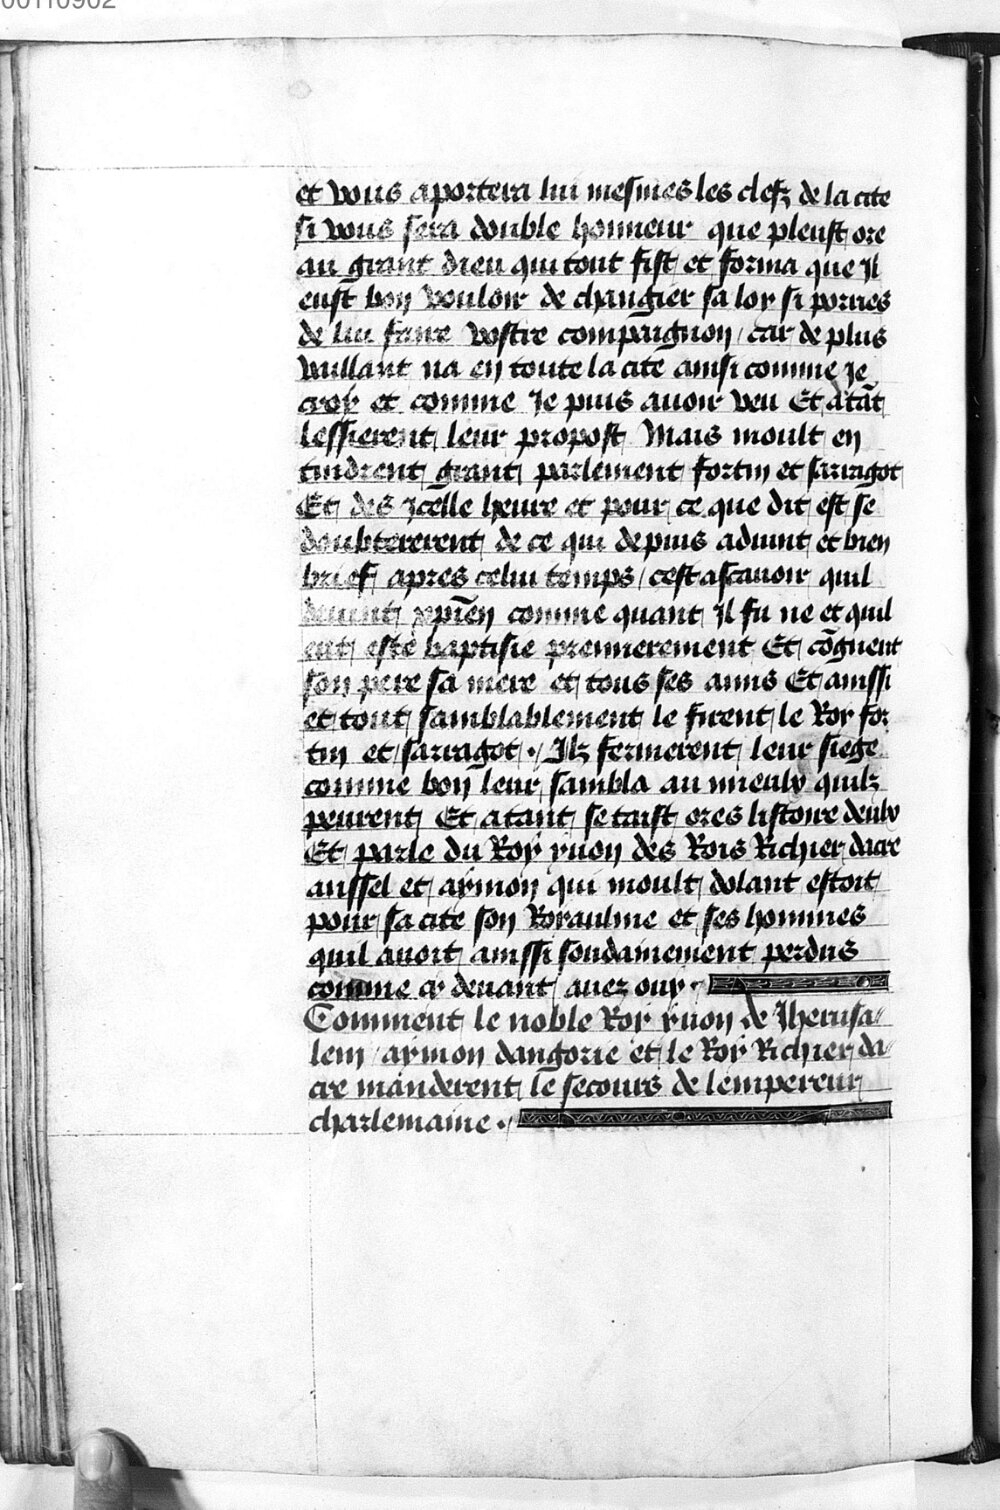 00110902
et vous aportera lui mesmes les clefz de la cite
si vous sera double honneur que pleust ore
au grant dieu qui tout fist et forma que Il
eust bon vouloir de changier sa loy si porries
de lui faire vostre compaignon / car de plus
vaillant na en toute la cite ainsi comme Je
croy et comme Je puis auoir veu Et atāt
lessierent leur propost Mais moult en
tindrent grant parlement fortin et sarragot
Et des Icelle heure et pour ce que dit est se
doubtererent de ce qui depuis aduint et bien
brief apres celui temps / cest ascauoir quil
deuint xpīen comme quant Il fu ne et quil
eut este baptisie premierement Et cōgneut
son pere sa mere et tous ses amis Et aussi
et tout samblablement le firent le Roy for
tin et sarragot ·/ Ilz fermerent leur siege
comme bon leur sambla au mieulx quilz
peurent Et atant se taist ores listoire deulx
Et parle du Roy yuon des Rois Richier dacre
anssel et aymon qui moult dolant estoit
pour sa cite son Roiaulme et ses hommes
quil auoit ainssi soudainement perdus
comme cy deuant auez ouy ·
Comment le noble Roy yuon de Jherusa/
lem / aymon dangorie et le Roy Richier da/
cre manderent le secours de lempereur
charlemaine ·/